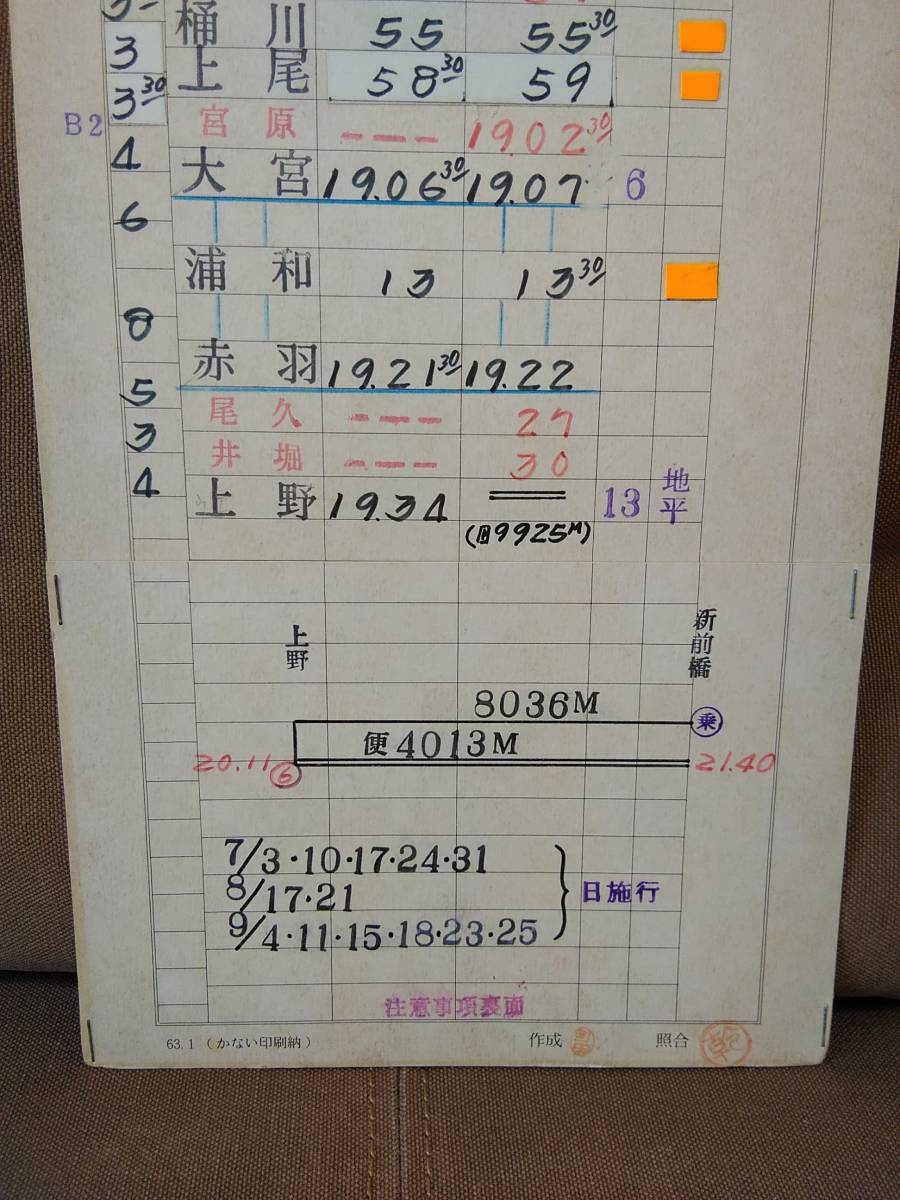 3
桶川 55 55 30
3 30 上尾 58 30 59
B2 宮原 --- 19.02 30
4 大宮 19.06 30 19.07 6
6
浦和 13 13 30
8
赤羽 19.21 30 19.22
5
尾久 --- 27
3 井堀 --- 30
4 上野 19.34 13 地平
(回9925M)
上野 新前橋
8036M 乗
便4013M
20.11 6 21.40
7/3・10・17・24・31
8/17・21 日施行
9/4・11・15・18・23・25
注意事項裏面
63.1 (かない印刷納) 作成 照合